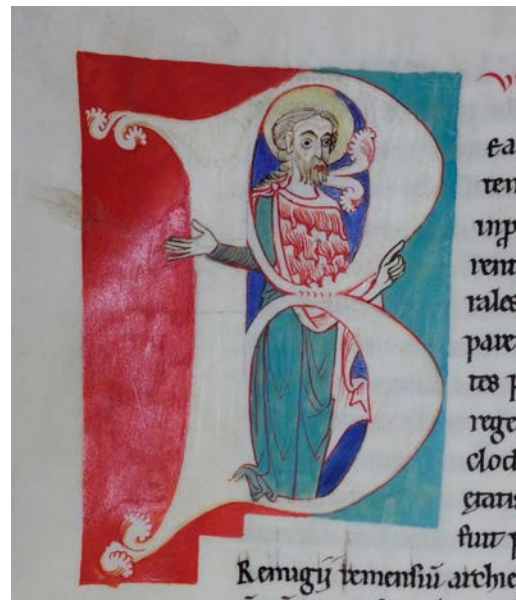 B
ea
ten
inp
rent
rales
paren
tes p
rege
clod
etatis
fuit p
Remigij remensiũ archie